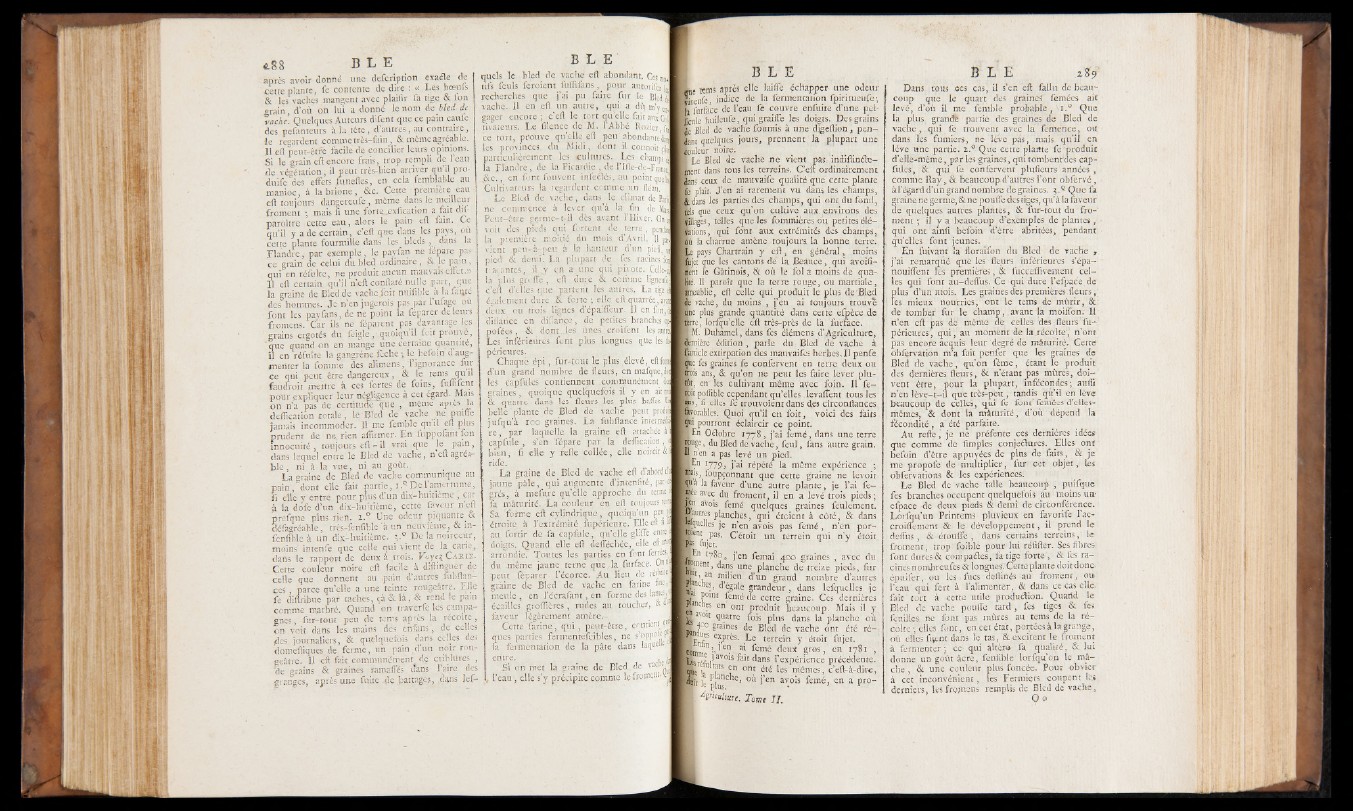 288 B L E
après avoir donné une description exacte de
cette plante, se contente de dire : « Les bœufs
& les vaches mangent avec plaisir sa tige & son
grain, d'où on lui a donné le nom de bled de
vache. Quelques Auteurs disent que ce pain cause
des pesanteurs à la tête, d'autres, au contraire,
le regardent comme très-sain, & même agréable.
Il est peut-être facile de concilier leurs opinions.
Si le grain est encore frais, trop rempli de l'eau
de végétation, il peut très-bien arriver qu'il pro-
duise des effets funestes, en cela semblable au
manioc, à la brione, &c. Cette première eau
est toujours dangereuse, même dans le meilleur
froment ; mais si une forte exsication a fait dis-
paroître cette eau, alors le pain est sain. Ce
qu'il y a de certain, c'est que dans les pays, où
cette plante fourmille dans les bleds, dans la
Flandre, par exemple, le paysan ne sépare pas
ce grain de celui du bled ordinaire, & le pain,
qui en résulte, ne produit aucun mauvais effet.»
Il est certain qu'il n'est constaté nulle part, que
la graine de Bled de vache soit nuisible à la santé
des hommes. Je n'en jugerois pas par l'usage où
sont les paysans, de ne point la séparer de leurs
fromens. Car ils ne séparent pas davantage les
grains ergotés du seigle, quoiqu'il soit prouvé,
que quand on en mange une certaine quantité,
il en résulte la gangrène sèche ; le besoin d'aug-
menter la somme des alimens, l'ignorance sur
ce qui peut être dangereux, & le tems qu'il
faudroit mettre à ces sortes de soins, suffisent
pour expliquer leur négligence à cet égard. Mais
on n'a pas de certitude que, même après la
dessication totale, le Bled de vache ne puisse
jamais incommoder. Il me semble qu'il est plus
prudent de ne rien affirmer. En supposant son
innocuité, toujours est-il vrai que le pain,
dans lequel entre le Bled de vache, n'est agréa-
ble, ni à la vue, ni au goût.
La graine de Bled de vache communique au
pain, dont elle fait partie, 1.° De l'amertume,
si elle y entre pour plus d'un dix-huitième, car
à la dose d'un dix-huitième, cette saveur n'est
presque plus rien. 2.° Une odeur piquante &
désagréable, très-sensible à un neuvième, & in-
sensible à un dix-huitième. 3.° De la noirceur,
moins intense que celle qui vient de la carie,
dans le rapport de deux à trois. Voyez CARIE.
Cette couleur noire est facile à distinguer de
celle que donnent au pain d'autres substan-
ces, parce qu'elle a une teinte rougeâtre. Elle
se distribue par taches, çà & là, & rend le pain
comme marbré. Quand on traverse les campa-
gnes, sur-tout peu de tems après la récolte,
on voit dans les mains des enfans, de celles
des journaliers, & quelquefois dans celles des
domestiques de ferme, un pain d'un noir rou-
geâtre. Il est fait communément de criblures
de grains & graines ramassées dans l'aire des
granges, après une suite de battages, dans les-
B L E
quels le bled de vache est abondant. Ces mo-
tifs seuls seroient suffisans, pour autoriser les
recherches que j'ai pu faire sur le Bled de
vache. Il en est un autre, qui a dû m'y
gager encore ; c'est le tort qu'elle fait aux Cul-
tivateurs. Le silence de M. l'Abbé Rozier, sur
ce tort, prouve qu'elle est peu abondante dans
les provinces du Midi, dont il connoît plus
particulièrement les cultures. Les champs de
la Flandre, de la Picardie, de l'Isle-de-France,
&c., en sont souvent infectés, au point que les
Cultivateurs la regardent comme un fléau.
Le Bled de vache, dans le climat de Paris,
ne commence à lever qu'à la fin de Mars.
Peut-être germe-t-il dès avant l'Hiver. On en
voit des pieds qui sortent de terre, pendant
la première moitié du mois d'Avril. Il par-
vient peu-à-peu à la hauteur d'un pied, un
pied & demi. La plupart de ses racines sont
traçantes, il y en a une qui pivote. Celle-ci,
la plus grosse, est dure & comme ligneuse ;
c'est d'elles que partent les autres. La tige est
également dure & forte ; elle est quarrée, avec
deux ou trois lignes d'épaisseur. Il en sort, de
distance en distance, de petites branches op-
posées, & dont les unes croisent les autres.
Les inférieures sont plus longues que les su-
périeures.
Chaque épi, sur-tout le plus élevé, est formé
d'un grand nombre de fleurs, en masque, dont
les capsules contiennent communément deux
graines, quoique quelquefois il y en ait trois
& quatre dans les fleurs les plus belles. Une
belle plante de Bled de vache peut produire
jusqu'à 100 graines. La substance intermédiai-
re, par laquelle la graine est attachée à la
capsule, s'en sépare par la dessication, ou
bien, si elle y reste collée, elle noircit & se
ride.
La graine de Bled de vache est d'abord d'un
jaune pâle, qui augmente d'intensité, par de-
grés, à mesure qu'elle approche du terme de
sa maturité. La couleur en est toujours terne.
Sa forme est cylindrique, quelqu'un peu plus
étroite à l'extrémité supérieure. Elle est
au sortir de sa capsule, qu'elle glisse entre les
doigts. Quand elle est desséchée, elle est
arrondie. Toutes les parties en sont serrées,
du même jaune terne que la surface. On ne
peut séparer l'écorce. Au lieu de réduire la
graine de Bled de vache en farine sous la
meule, en l'écrasant, on forme des lames ou
écailles grossières, rudes au toucher, & d'une
saveur légèrement amère.
Cette farine, qui, peut-être, contient quel-
ques parties fermentescibles, ne s'oppose pas à
la fermentation de la pâte dans laquelle elle
entre.
Si on met la graine de Bled de vache dans
l'eau, elle s'y précipite comme le froment.
B L E
que tems après elle laisse échapper une odeur
vineuse, indice de la fermentation spiritueuse ;
la surface de l'eau se couvre ensuite d'une pel-
licule huileuse, qui graisse les doigts. Des grains
de Bled de vache soumis à une digestion, pen-
dant quelques jours, prennent la plupart une
couleur noire.
Le Bled de vache ne vient pas indistincte-
ment dans tous les terreins. C'est ordinairement
dans ceux de mauvaise qualité que cette plante
se plaît. J'en ai rarement vu dans les champs,
& dans les parties des champs, qui ont du fond,
tels que ceux qu'on cultive aux environs des
villages, telles que les sommières ou petites élé-
vations, qui sont aux extrémités des champs,
où la charrue amène toujours la bonne terre.
Le pays Chartrain y est, en général, moins
sujet que les cantons de la Beauce, qui avoisi-
nent le Gâtinois, & où le sol a moins de qua-
lité. Il paroît que la terre rouge, ou martiale,
ameublie, est celle qui produit le plus de Bled
de vache, du moins, j'en ai toujours trouvé
une plus grande quantité dans cette espèce de
terre, lorsqu'elle est très-près de la surface.
M. Duhamel, dans ses élémens d'Agriculture,
dernière édition, parle du Bled de vache à
l'article extirpation des mauvaises herbes. Il pense
que ses graines se conservent en terre deux ou
trois ans, & qu'on ne peut les faire lever plu-
tôt, en les cultivant même avec soin. Il se-
roit possible cependant qu'elles levassent tous les
ans, si elles se trouvoient dans des circonstances
favorables. Quoi qu'il en soit, voici des faits
qui pourront éclaircir ce point.
En Octobre 1778, j'ai semé, dans une terre
rouge, du Bled de vache, seul, sans autre grain.
Il n'en a pas levé un pied.
En 1779, j'ai répété la même expérience ;
mais, soupçonnant que cette graine ne levoit
qu'à la faveur d'une autre plante, je l'ai se-
mée avec du froment, il en a levé trois pieds ;
j'en avois semé quelques graines seulement.
D'autres planches, qui étoient à côté, & dans
lesquelles je n'en avois pas semé, n'en por-
toient pas. C'étoit un terrein qui n'y étoit
pas sujet.
En 1780, j'en semai 400 graines, avec du
froment, dans une planche de treize pieds, sur
huit, au milieu d'un grand nombre d'autres
planches, d'égale grandeur, dans lesquelles je
n'ai point semé de cette graine. Ces dernières
planches en ont produit beaucoup. Mais il y
en avoit quatre fois plus dans la planche où
les 400 graines de Bled de vache ont été ré-
pandues exprès. Le terrein y étoit sujet.
Enfin, j'en ai semé deux gros, en 1781,
comme j'avois fait dans l'expérience précédente.
Les résultats en ont été les mêmes, c'est-à-dire,
que la planche, où j'en avois semé, en a pro-
duit le plus.
Agriculture. Tome II.
B L E 289
Dans tous ces cas, il s'en est fallu de beau-
coup que le quart des graines semées ait
levé, d'où il me semble probable, 1.° Que
la plus grande partie des graines de Bled de
vache, qui se trouvent avec la semence, ou
dans les fumiers, ne lève pas, mais qu'il en
lève une partie. 2.° Que cette plante se produit
d'elle-même, par les graines, qui tombent des cap-
sules, & qui se conservent plusieurs années,
comme Ray, & beaucoup d'autres l'ont observé,
à l'égard d'un grand nombre de graines. 3.° Que sa
graine ne germe, & ne pousse des tiges, qu'à la faveur
de quelques autres plantes, & sur-tout du fro-
ment ; il y a beaucoup d'exemples de plantes,
qui ont ainsi besoin d'être abritées, pendant
qu'elles sont jeunes.
En suivant la floraison du Bled de vache,
j'ai remarqué que les fleurs inférieures s'épa-
nouissent les premières, & successivement cel-
les qui sont au-dessus. Ce qui dure l'espace de
plus d'un mois. Les graines des premières fleurs,
les mieux nourries, ont le tems de mûrir, &
de tomber sur le champ, avant la moisson. Il
n'en est pas de même de celles des fleurs su-
périeures, qui, au moment de la récolte, n'ont
pas encore acquis leur degré de maturité. Cette
observation m'a fait penser que les graines de
Bled de vache, qu'on sème, étant le produit
des dernières fleurs, & n'étant pas mûres, doi-
vent être, pour la plupart, infécondes ; aussi
n'en lève-t-il que très-peu, tandis qu'il en lève
beaucoup de celles, qui se sont semées d'elles-
mêmes, & dont la maturité, d'où dépend la
fécondité, a été parfaite.
Au reste, je ne présente ces dernières idées
que comme de simples conjectures. Elles ont
besoin d'être appuyées de plus de faits, & je
me propose de multiplier, sur cet objet, les
observations & les expériences.
Le Bled de vache talle beaucoup, puisque
ses branches occupent quelquefois au moins un
espace de deux pieds & demi de circonférence.
Lorsqu'un Printems pluvieux en favorise l'ac-
croissement & le développement, il prend le
dessus, & étouffe, dans certains terreins, le
froment, trop foible pour lui résister. Ses fibres
sont dures & compactes, sa tige forte, & ses ra-
cines nombreuses & longues. Cette plante doit donc
épuiser, ou les sucs destinés au froment, ou
l'eau qui sert à l'alimenter, & dans ce cas elle
fait tort à cette utile production. Quand le
Bled de vache pousse tard, ses tiges & ses
feuilles ne sont pas mûres au tems de la ré-
colte ; elles sont, en cet état, portées à la grange,
où elles suent dans le tas, & excitent le froment
à fermenter ; ce qui altère sa qualité, & lui
donne un goût âcre, sensible lorsqu'on le mâ-
che, & une couleur plus foncée. Pour obvier
à cet inconvénient, les Fermiers coupent les
derniers, les fromens remplis de Bled de vache,
O o